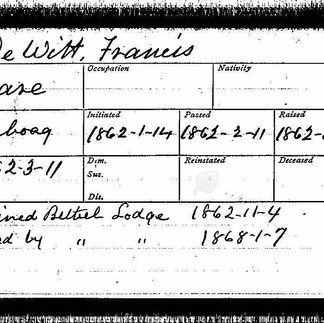 De Witt, Francis
Occupation Nativity
ware
Initiated Passed Raised
boag 1862-1-14 1862-2-11 1862-
2-3-11 Dem. Reinstated Deceased
Sus.
Dis.
ined Bethel Lodge 1862-11-4
ed by " " 1868-1-7